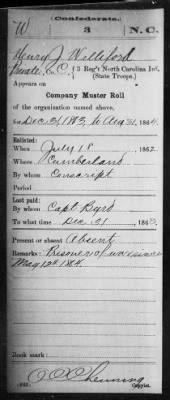 Confederate.
W 3 N.C.
Henry J. Williford
Private, Co. C, 3 Reg't North Carolina Inf.
(State Troops.)
Appears on
Company Muster Roll
of the organization named above,
for Dec 31 1863, to Aug 31, 1864.
Enlisted:
When July 18, 1862.
Where Cumberland
By whom Conscript
Period
Last paid:
By whom Capt Byrd
To what time Dec 31, 1863.
Present or absent Absent
Remarks: Prisoner of war since
May 12th 1864.
Book mark:
(642)
Copyist.